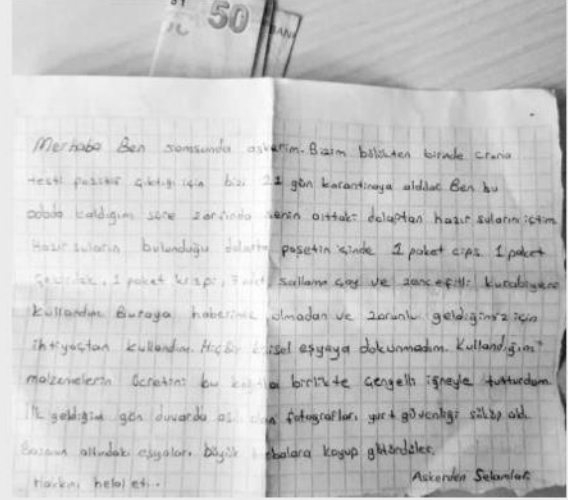 50
Merhaba Ben Samsunda askerim. Bizim bölükten birinde crona
testi pozitif çıktığı için bizi 21 gün karantinaya aldılar Ben bu
odada kaldığım süre zarfında senin alttaki dolaptan hazır sularını içtim
Hazır suların bulunduğu dolapta poşetin içinde 1 paket cips, 1 paket
çekirdek, 1 paket krispi, sallama çay ve zencefilli kurabiyeni
kullandım. Buraya haberimiz olmadan ve zorunlu geldiğimiz için
ihtiyaçtan kullandım. Hiçbir kişisel eşyaya dokunmadım. Kullandığım
malzemelerin ücretini bu kağıtla birlikte çengelli iğneyle tutturdum
İlk geldiğim gün duvarda asılı olan fotoğrafları yurt güvenliği söküp aldı.
Bazanın altındaki eşyaları büyük torbalara koyup götürdüler.
Hakkını helal et...
Askerden Selamlar.